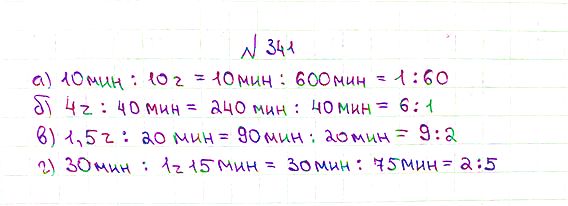 № 341
а) 10 мин : 10 г = 10 мин : 600 мин = 1 : 60
б) 4 г : 40 мин = 240 мин : 40 мин = 6 : 1
в) 1,5 г : 20 мин = 90 мин : 20 мин = 9 : 2
г) 30 мин : 1 г 15 мин = 30 мин : 75 мин = 2 : 5